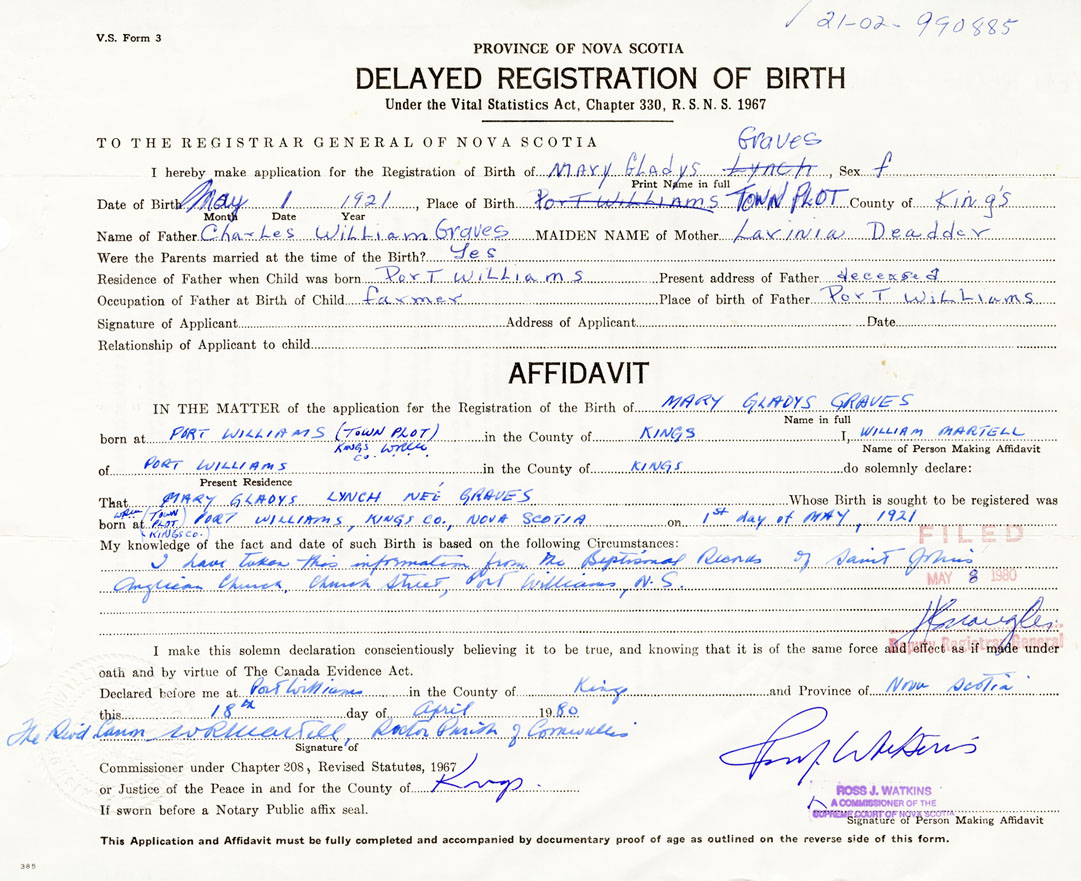 21-02- 990885
V.S. Form 3
PROVINCE OF NOVA SCOTIA
DELAYED REGISTRATION OF BIRTH
Under the Vital Statistics Act, Chapter 330, R.S.N.S. 1967
TO THE REGISTRAR GENERAL OF NOVA SCOTIA
Graves
I hereby make application for the Registration of Birth of Mary Gladys Lynch, Sex f
Print Name in full
Date of Birth May 1 1921, Place of Birth Port Williams TOWN PLOT County of King's
Month Date Year
Name of Father Charles William Graves MAIDEN NAME of Mother Lavinia Deadder
Were the Parents married at the time of the Birth? Yes
Residence of Father when Child was born Port Williams Present address of Father deceased
Occupation of Father at Birth of Child farmer Place of birth of Father Port Williams
Signature of Applicant Address of Applicant Date
Relationship of Applicant to child
AFFIDAVIT
IN THE MATTER of the application for the Registration of the Birth of MARY GLADYS GRAVES
Name in full
born at PORT WILLIAMS (TOWN PLOT) in the County of KINGS I, WILLIAM MARTELL
KINGS CO. Name of Person Making Affidavit
of PORT WILLIAMS in the County of KINGS do solemnly declare:
Present Residence
That MARY GLADYS LYNCH NEÉ GRAVES Whose Birth is sought to be registered was
born at (TOWN PLOT) PORT WILLIAMS, KINGS CO., NOVA SCOTIA on 1st day of MAY, 1921
(KINGS CO.)
My knowledge of the fact and date of such Birth is based on the following Circumstances:
FILED
I have taken this information from the Baptismal Records of Saint John's
MAY 8 1980
Anglican Church, Church Street, Port Williams, N.S.
Deputy Registrar General
I make this solemn declaration conscientiously believing it to be true, and knowing that it is of the same force and effect as if made under
oath and by virtue of The Canada Evidence Act.
Declared before me at Port Williams in the County of Kings and Province of Nova Scotia
this 18th day of April 1980
The Rev'd Canon WR Martell, Rector Parish of Cornwallis
Signature of
Commissioner under Chapter 208, Revised Statutes, 1967
or Justice of the Peace in and for the County of Kings.
If sworn before a Notary Public affix seal.
ROSS J. WATKINS
A COMMISSIONER OF THE
SUPREME COURT OF NOVA SCOTIA
Signature of Person Making Affidavit
This Application and Affidavit must be fully completed and accompanied by documentary proof of age as outlined on the reverse side of this form.
385